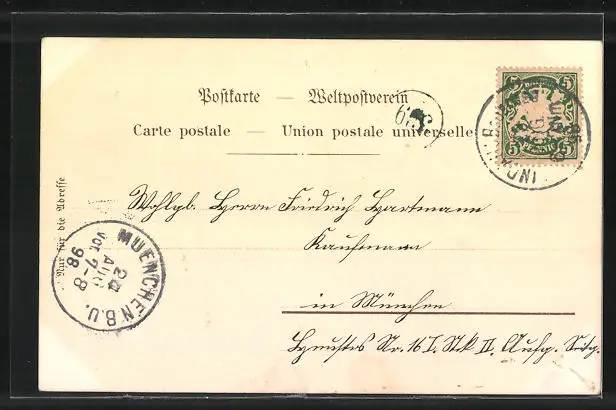 Postkarte — Weltpostverein
Carte postale — Union postale universelle
5 5
5 PFENNIG 5
63
Nur für die Adresse
Wohlgb. Herrn Friedrich Hartmann
Kaufmann
in München
Nr. 16 I. Stk II. Aufg.
MUENCHEN B.U.
24
AUG
VOR. 7-8
98